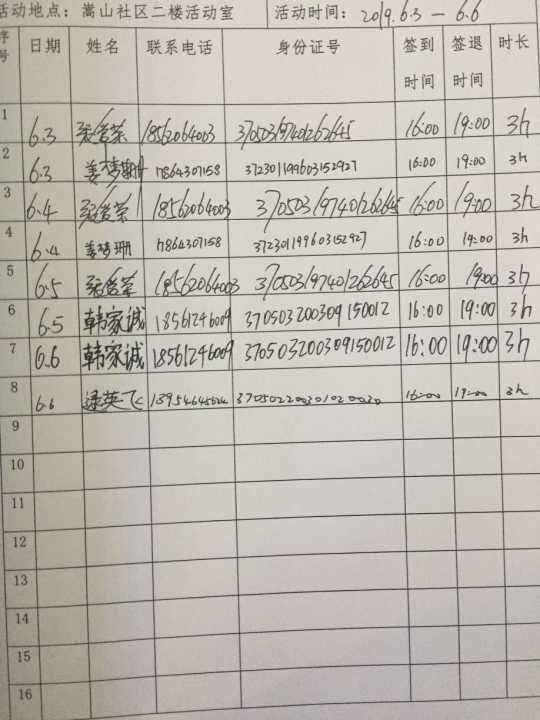 活动地点：嵩山社区二楼活动室 活动时间：2019.6.3 — 6.6
序号 日期 姓名 联系电话 身份证号 签到时间 签退时间 时长
1 6.3 18562064003 370503197401262645 16:00 19:00 3h
2 6.3 姜梦珊 17864307158 372301199603152927 16:00 19:00 3h
3 6.4 18562064003 370503197401262645 16:00 19:00 3h
4 6.4 姜梦珊 17864307158 372301199603152927 16:00 19:00 3h
5 6.5 18562064003 370503197401262645 16:00 19:00 3h
6 6.5 韩家诚 18561246009 370503200309150012 16:00 19:00 3h
7 6.6 韩家诚 18561246009 370503200309150012 16:00 19:00 3h
8 6.6 16:00 19:00 3h
9
10
11
12
13
14
15
16